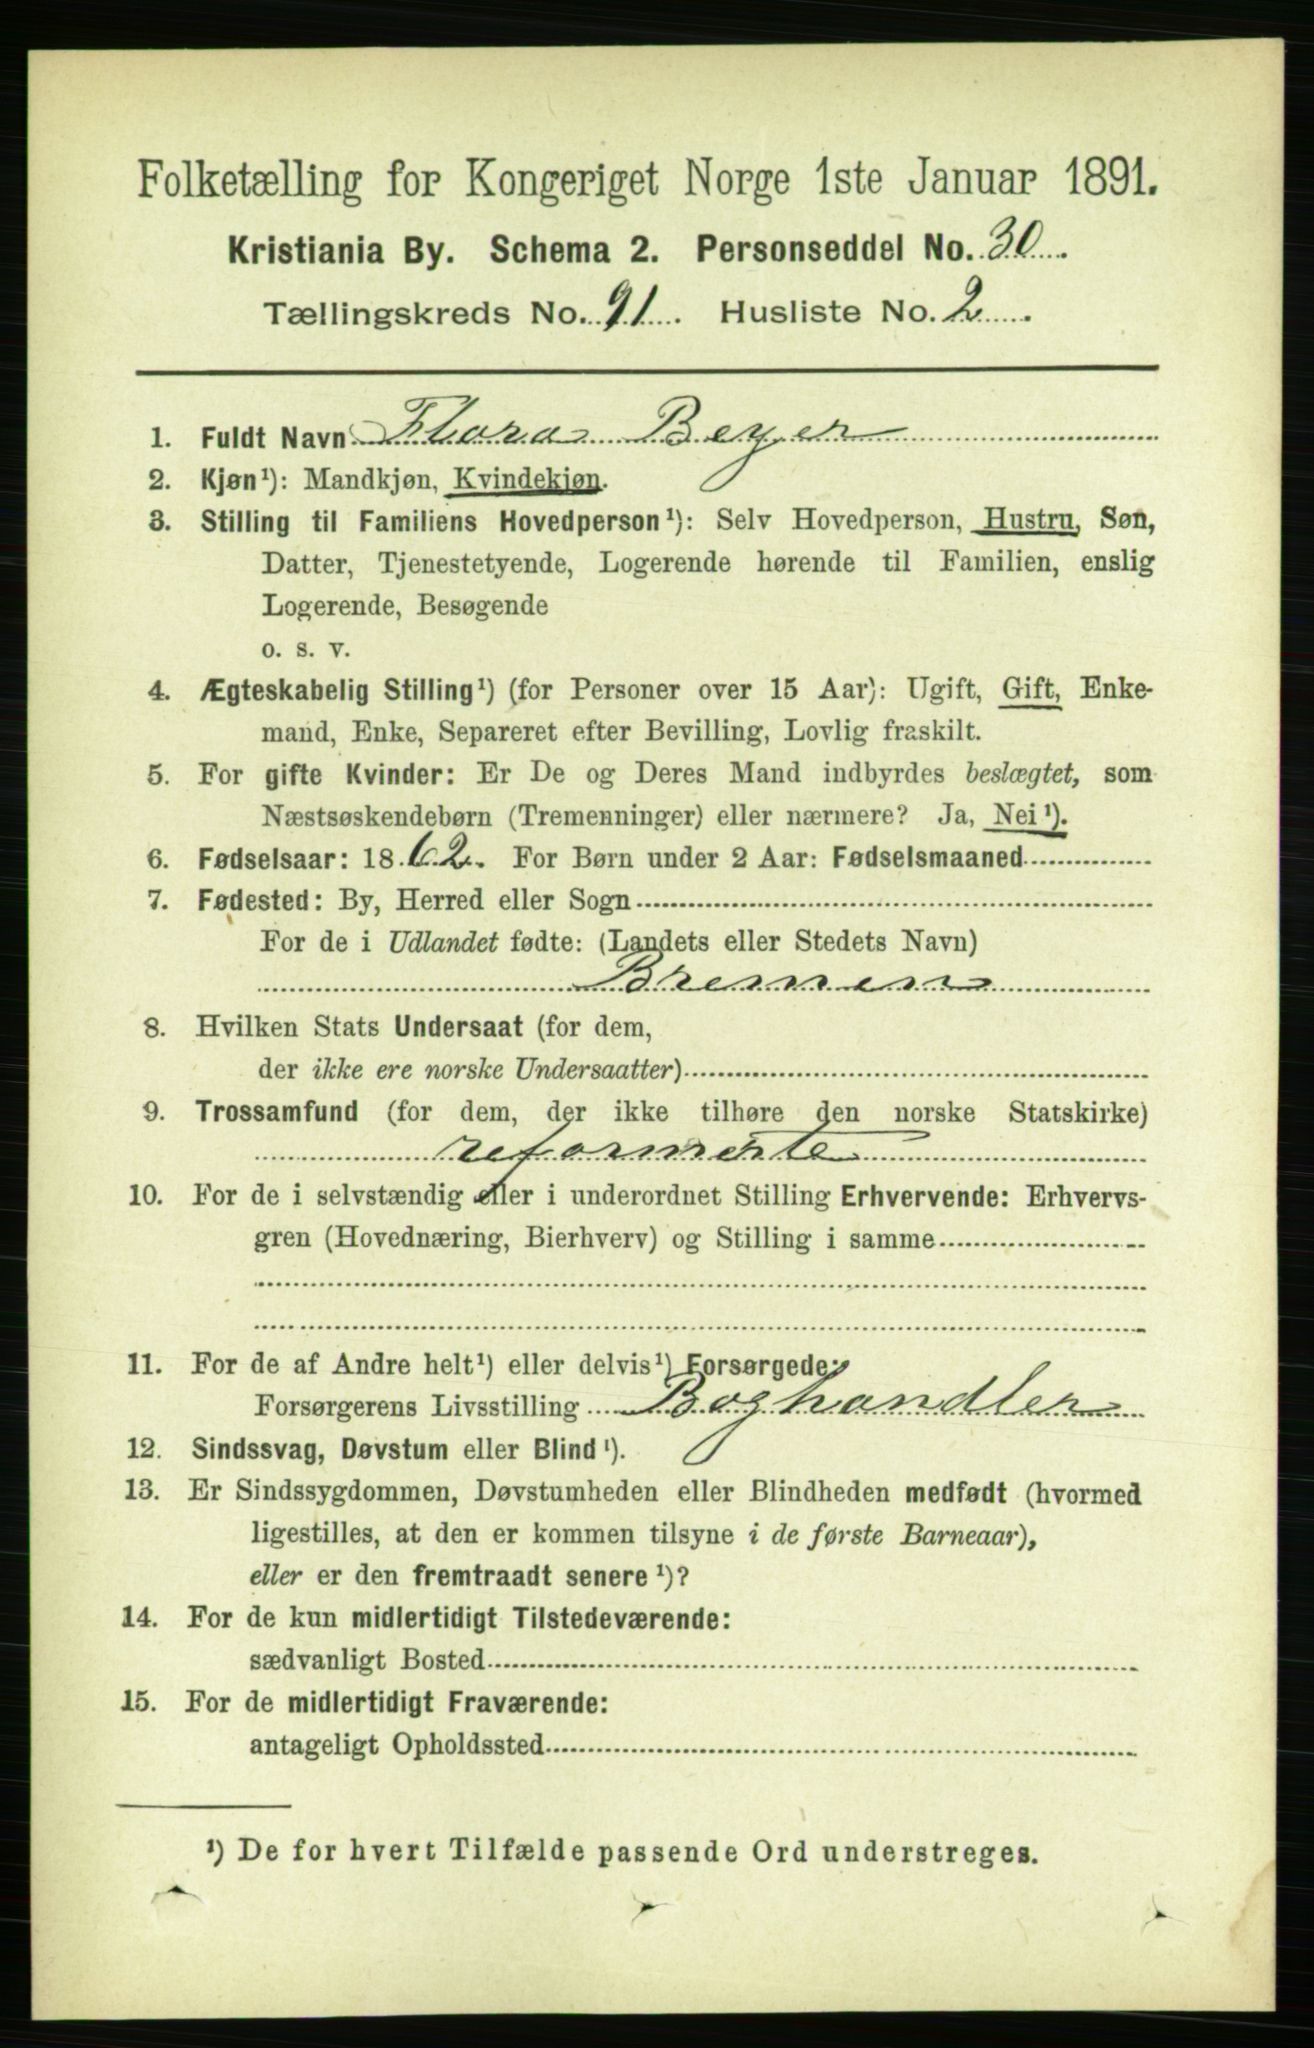 Folketælling for Kongeriget Norge 1ste Januar 1891.
Kristiania By. Schema 2. Personseddel No. 30
Tællingskreds No. 91. Husliste No. 2.
1. Fuldt Navn Flora Beyer
2. Kjøn¹): Mandkjøn, Kvindekjøn.
3. Stilling til Familiens Hovedperson¹): Selv Hovedperson, Hustru, Søn,
Datter, Tjenestetyende, Logerende hørende til Familien, enslig
Logerende, Besøgende
o. s. v.
4. Ægteskabelig Stilling¹) (for Personer over 15 Aar): Ugift, Gift, Enke-
mand, Enke, Separeret efter Bevilling, Lovlig fraskilt.
5. For gifte Kvinder: Er De og Deres Mand indbyrdes beslægtet, som
Næstsøskendebørn (Tremenninger) eller nærmere? Ja, Nei¹).
6. Fødselsaar: 1862. For Børn under 2 Aar: Fødselsmaaned
7. Fødested: By, Herred eller Sogn
For de i Udlandet fødte: (Landets eller Stedets Navn)
Bremen
8. Hvilken Stats Undersaat (for dem,
der ikke ere norske Undersaatter)
9. Trossamfund (for dem, der ikke tilhøre den norske Statskirke)
reformerte
10. For de i selvstændig eller i underordnet Stilling Erhvervende: Erhvervs-
gren (Hovednæring, Bierhverv) og Stilling i samme
11. For de af Andre helt¹) eller delvis¹) Forsørgede:
Forsørgerens Livsstilling Boghandler
12. Sindssvag, Døvstum eller Blind¹).
13. Er Sindssygdommen, Døvstumheden eller Blindheden medfødt (hvormed
ligestilles, at den er kommen tilsyne i de første Barneaar),
eller er den fremtraadt senere¹)?
14. For de kun midlertidigt Tilstedeværende:
sædvanligt Bosted
15. For de midlertidigt Fraværende:
antageligt Opholdssted
¹) De for hvert Tilfælde passende Ord understreges.